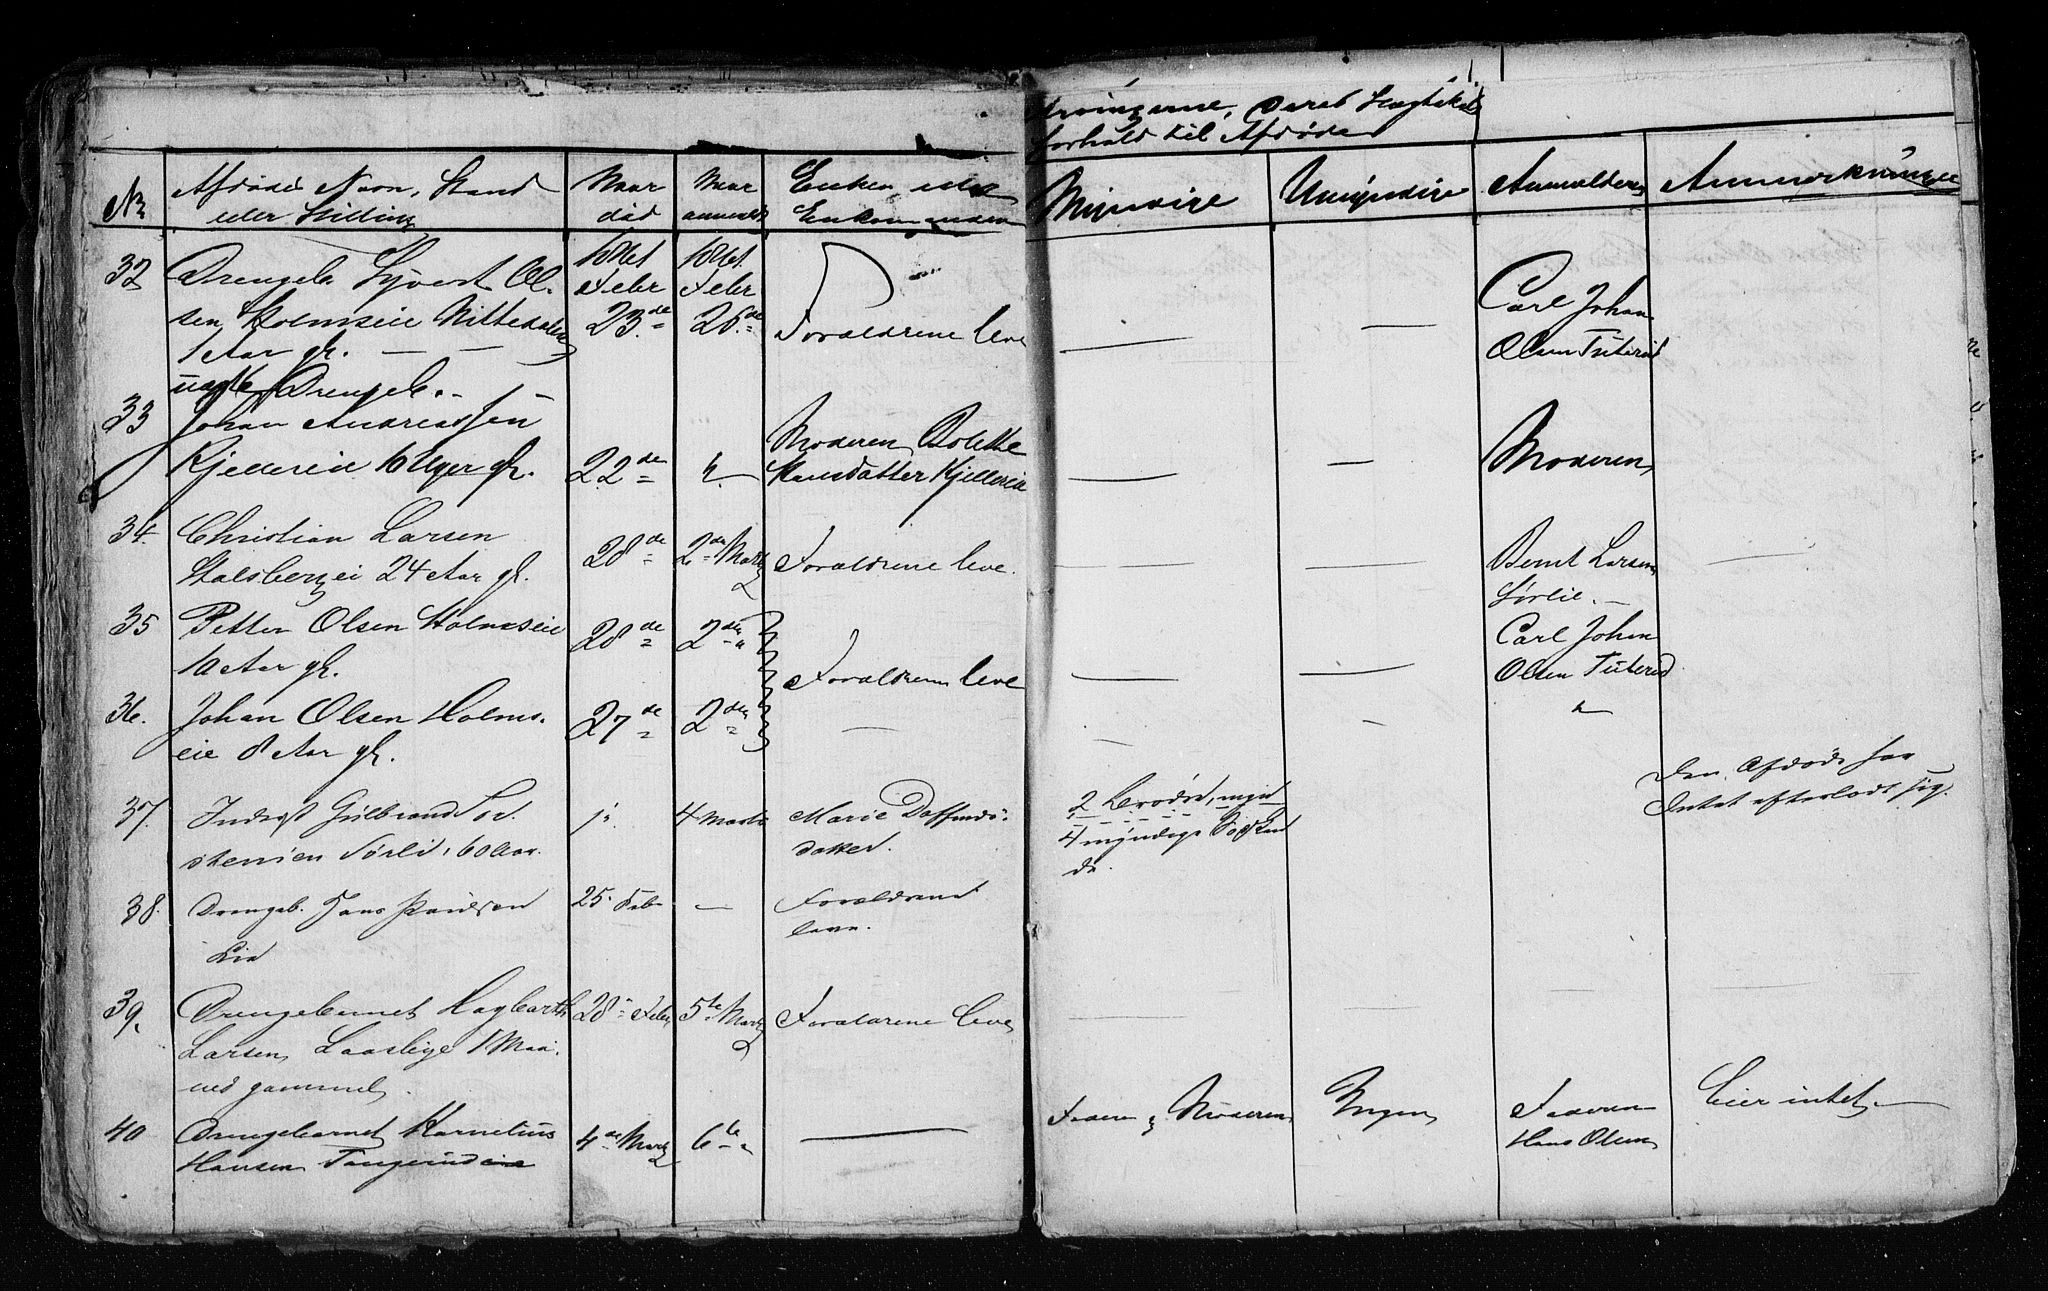 Arvingerne, deres Slægtskabs
forhold til Afdøde
No
Afdødes Navn, Stand
eller Stilling
Naar
død
Naar
anmeldt
Enken eller
Enkemanden
Myndige
Umyndige
Anmelderen
Anmærkninger
32
Drengeb. Syvert Ol-
sen Holmseie Nittedalen
1 Aar gl.
Febr
23de
Febr
26de
Forældrene leve
Carl Johan
Olsen Tuterud
33
uægte Drengeb.
Johan Andreassen
Kjellereie 16 Uger gl.
22de
"
Moderen Bolette
Hansdatter Kjellereie
Moderen
34.
Christian Larsen
Stalsbergei 24 Aar gl.
28de
2den Marts
Forældrene leve.
Bernt Larsen
Sørlie.
35
Petter Olsen Holmseie
10 Aar gl.
28de
2den "
Forældrene leve
Carl Johan
Olsen Tuterud
36.
Johan Olsen Holms-
eie 8 Aar gl.
27de
2den
"
37.
Inderst Gulbrand Tor-
stensen Sørli, 60 Aar.
4 Marts
Marie Doffends-
datter.
2 Brødre, mynd
4 myndige Søsken
de.
Den Afdøde har
Intet efterladt sig.
38.
Drengeb. Hans Paulsen
Lia
25. Feb
Forældrene
leve.
39.
Drengebarnet Hagbarth
Larsen, Laaslige 1 Maa-
ned gammel.
28 Febr
5te Marts
Forældrene leve
40
Drengebarnet Karnelius
Hansen Tangerudeie
4de Marts
6te "
Faderen & Moderen
Ingen
Faderen
Hans Olsen
Eier intet.